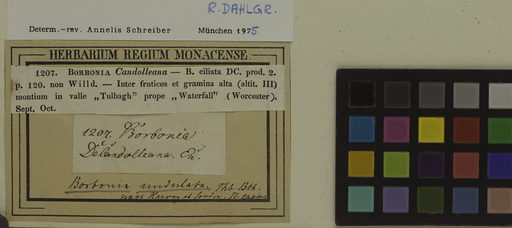 R. DAHLGR.
Determ.-rev. Annelis Schreiber München 1975
HERBARIUM REGIUM MONACENSE.
1207. BORBONIA Candolleana — B. ciliata DC. prod. 2.
p. 120. non Willd. — Inter frutices et gramina alta (altit. III)
montium in valle „Tulbagh" prope „Waterfall" (Worcester).
Sept. Oct.
1207. Borbonia
DeCandolleana. E.
Borbonia undulata. Thb.